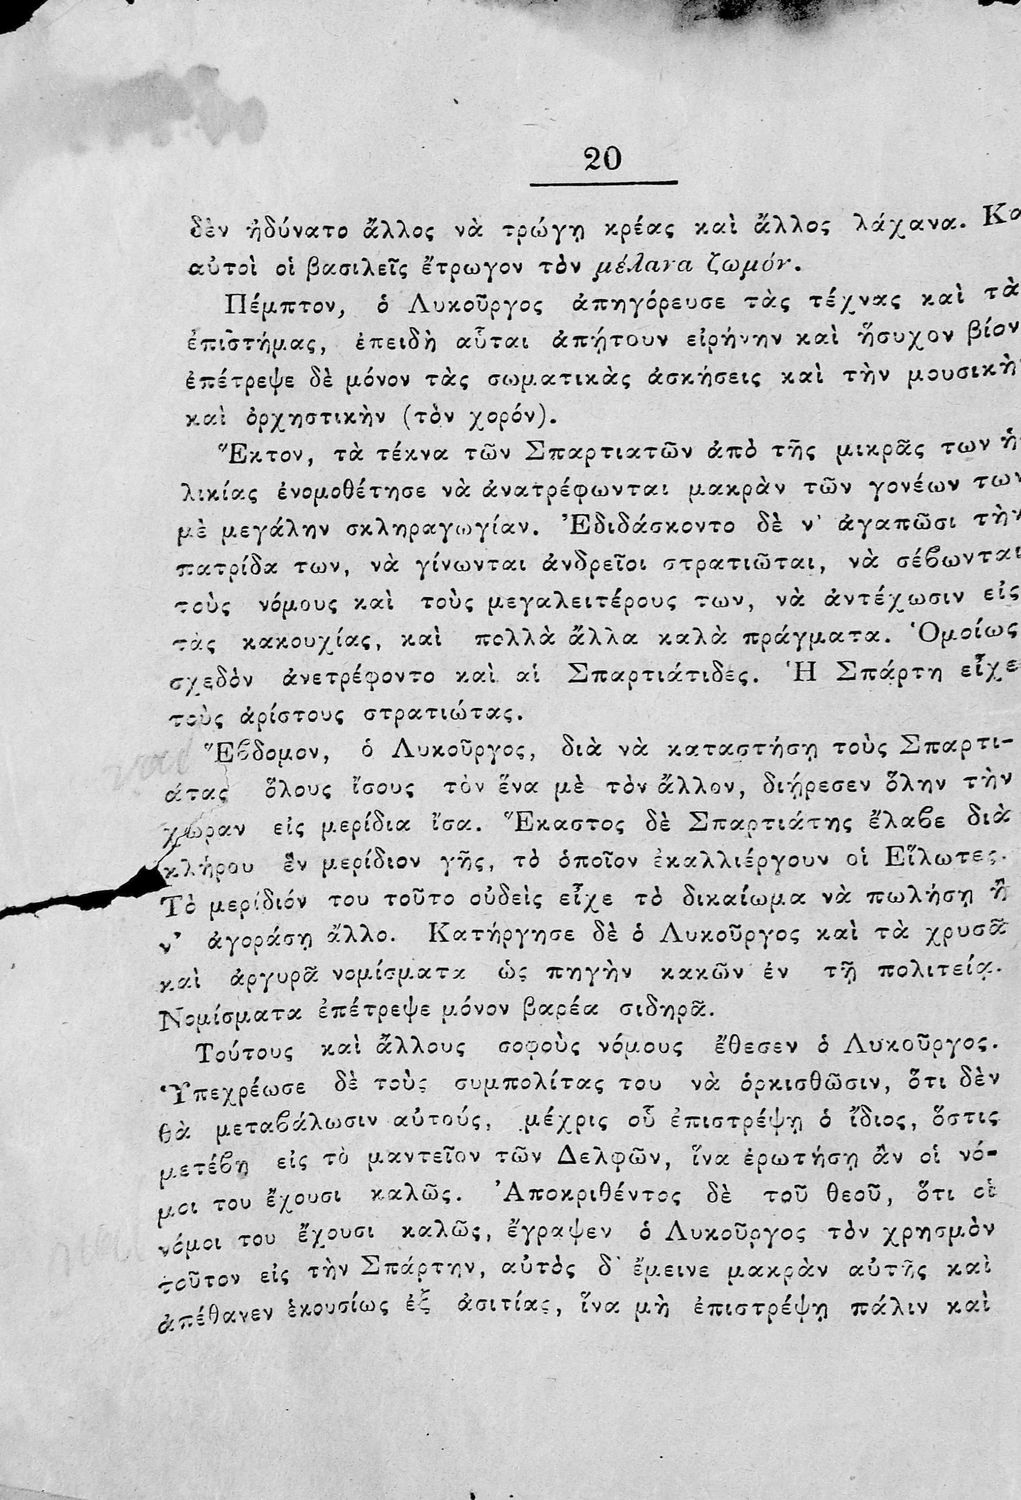 20
δὲν ἠδύνατο ἄλλος νὰ τρώγῃ κρέας καὶ ἄλλος λάχανα. Κα
αὐτοὶ οἱ βασιλεῖς ἔτρωγον τὸν μέλανα ζωμόν.
Πέμπτον, ὁ Λυκοῦργος ἀπηγόρευσε τὰς τέχνας καὶ τὰ
ἐπιστήμας, ἐπειδὴ αὗται ἀπῄτουν εἰρήνην καὶ ἥσυχον βίον
ἐπέτρεψε δὲ μόνον τὰς σωματικὰς ἀσκήσεις καὶ τὴν μουσικὴ
καὶ ὀρχηστικὴν (τὸν χορόν).
Ἕκτον, τὰ τέκνα τῶν Σπαρτιατῶν ἀπὸ τῆς μικρᾶς των ἡ
λικίας ἐνομοθέτησε νὰ ἀνατρέφωνται μακρὰν τῶν γονέων των
μὲ μεγάλην σκληραγωγίαν. Ἐδιδάσκοντο δὲ ν' ἀγαπῶσι τὴν
πατρίδα των, νὰ γίνωνται ἀνδρεῖοι στρατιῶται, νὰ σέβωνται
τοὺς νόμους καὶ τοὺς μεγαλειτέρους των, νὰ ἀντέχωσιν εἰς
τὰς κακουχίας, καὶ πολλὰ ἄλλα καλὰ πράγματα. Ὁμοίως
σχεδὸν ἀνετρέφοντο καὶ αἱ Σπαρτιάτιδες. Ἡ Σπάρτη εἶχε
τοὺς ἀρίστους στρατιώτας.
Ἕβδομον, ὁ Λυκοῦργος, διὰ νὰ καταστήσῃ τοὺς Σπαρτι-
άτας ὅλους ἴσους τὸν ἕνα μὲ τὸν ἄλλον, διῄρεσεν ὅλην τὴν
χώραν εἰς μερίδια ἴσα. Ἕκαστος δὲ Σπαρτιάτης ἔλαβε διὰ
κλήρου ἓν μερίδιον γῆς, τὸ ὁποῖον ἐκαλλιέργουν οἱ Εἵλωτες.
Τὸ μερίδιόν του τοῦτο οὐδεὶς εἶχε τὸ δικαίωμα νὰ πωλήσῃ ἢ
ν' ἀγοράσῃ ἄλλο. Κατήργησε δὲ ὁ Λυκοῦργος καὶ τὰ χρυσᾶ
καὶ ἀργυρᾶ νομίσματα ὡς πηγὴν κακῶν ἐν τῇ πολιτείᾳ.
Νομίσματα ἐπέτρεψε μόνον βαρέα σιδηρᾶ.
Τούτους καὶ ἄλλους σοφοὺς νόμους ἔθεσεν ὁ Λυκοῦργος.
Ὑπεχρέωσε δὲ τοὺς συμπολίτας του νὰ ὁρκισθῶσιν, ὅτι δὲν
θὰ μεταβάλωσιν αὐτούς, μέχρις οὗ ἐπιστρέψῃ ὁ ἴδιος, ὅστις
μετέβη εἰς τὸ μαντεῖον τῶν Δελφῶν, ἵνα ἐρωτήσῃ ἂν οἱ νό-
μοι του ἔχουσι καλῶς. Ἀποκριθέντος δὲ τοῦ θεοῦ, ὅτι οἱ
νόμοι του ἔχουσι καλῶς, ἔγραψεν ὁ Λυκοῦργος τὸν χρησμὸν
τοῦτον εἰς τὴν Σπάρτην, αὐτὸς δ' ἔμεινε μακρὰν αὐτῆς καὶ
ἀπέθανεν ἑκουσίως ἐξ ἀσιτίας, ἵνα μὴ ἐπιστρέψῃ πάλιν καὶ